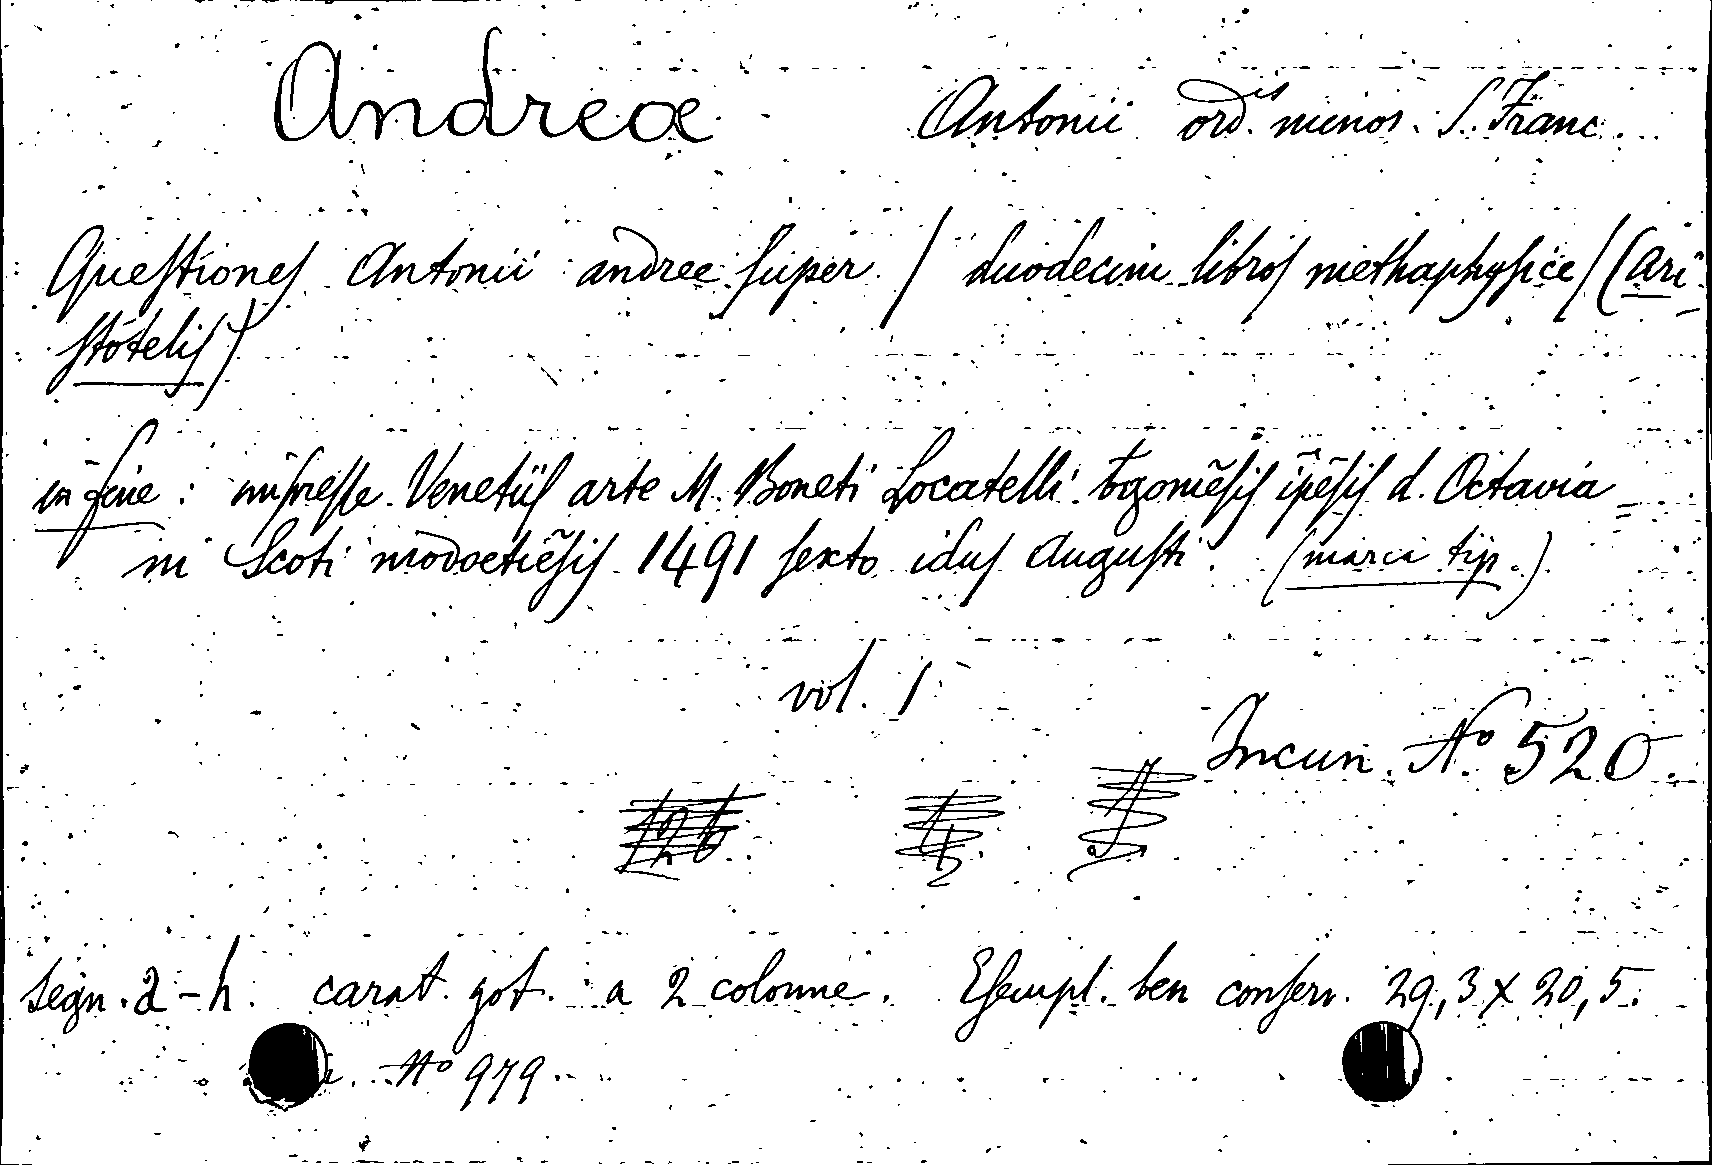 Andreæ Antonii ord.is minor. S. Franc.
Queſtioneſ Antonii andree ſuper / duodecim libroſ methaphyſice / (Ari-
ſtoteliſ)
in fine : impreſſe Venetiiſ arte M. Boneti Locatelli. Octavia=
ni Scoti modoetiẽſiſ 1491 ſexto iduſ Auguſti. (marca tip.)
vol. 1
Incun. No 520.
segn. a-h. carat. got. a 2 colonne. Eſempl. ben conſerv. 29,3 x 20,5.
No 979.